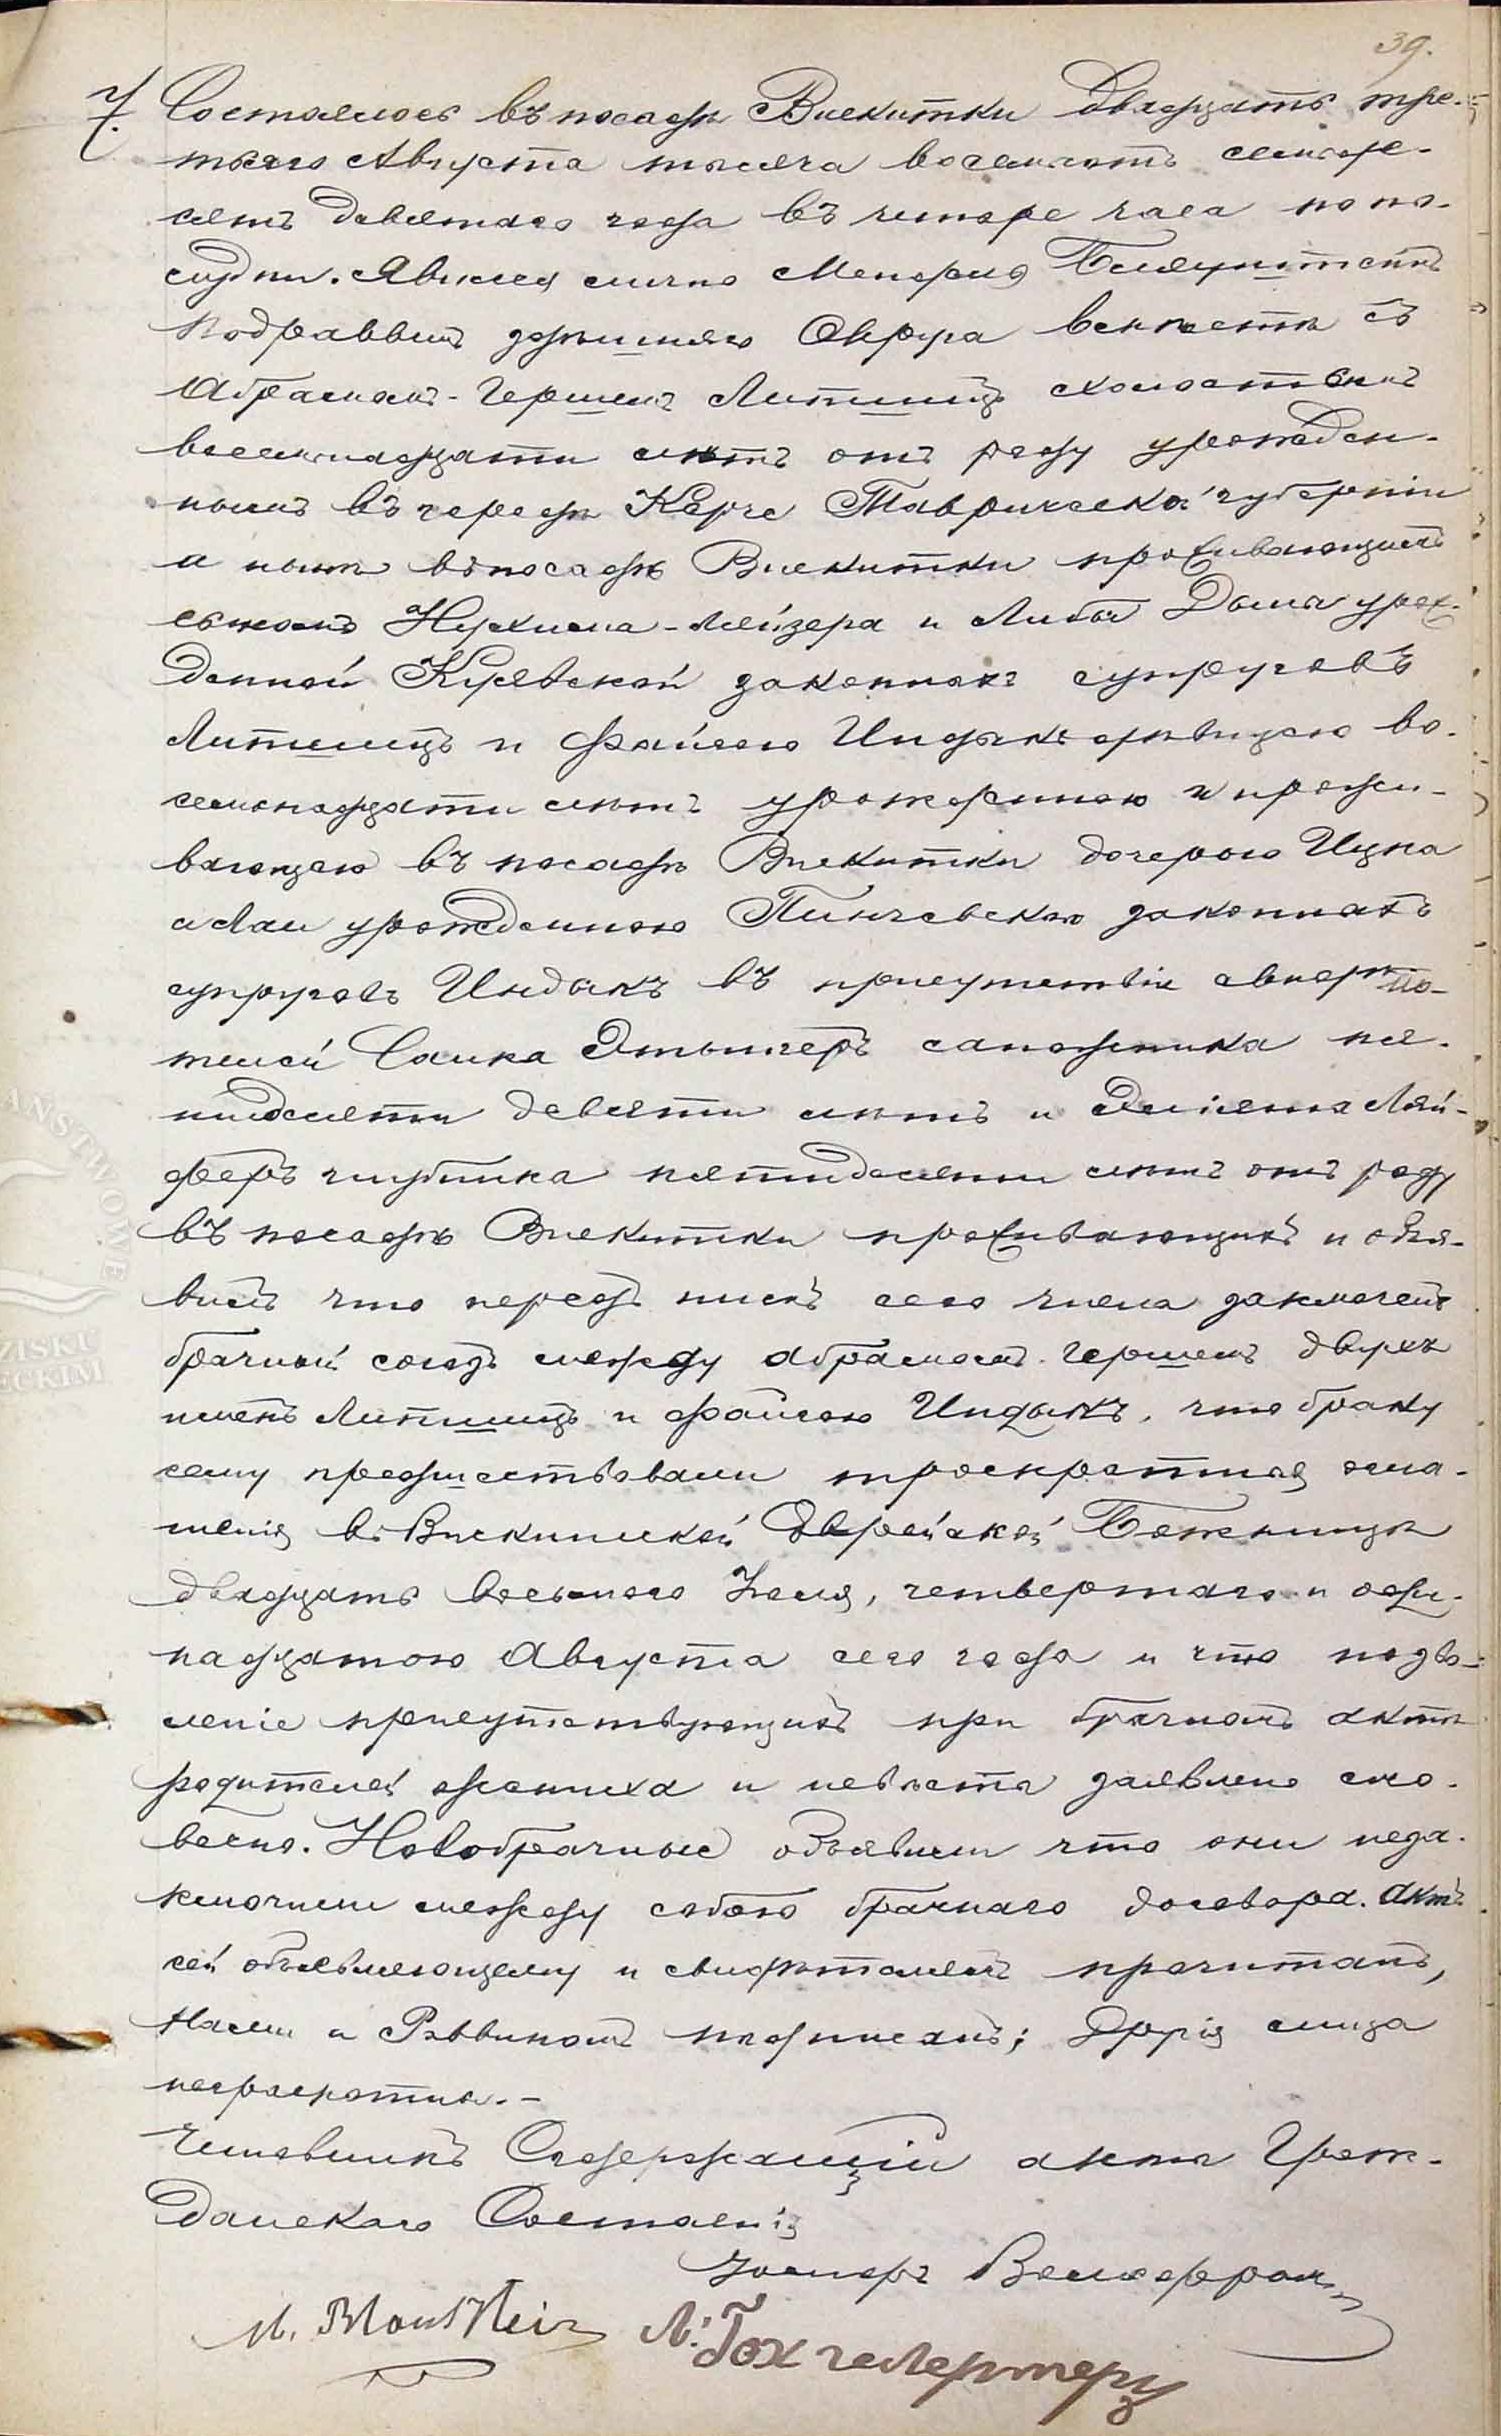 39.
7. Состоялось въ посадѣ Вискитки двадцать тре-
тьяго Августа тысяча восемьсотъ семьде-
сятъ девятаго года въ четыре часа по по-
лудни. Явился лично
Подраввинъ здѣшняго Округа вмѣстѣ съ
Абрамомъ-Гершемъ Липшицъ холостымъ
восемнадцати лѣтъ отъ роду урожден-
нымъ въ городѣ Керче Таврической губерніи
а нынѣ въ посадѣ Вискитки проживающимъ
сыномъ Нухима-Лейзера и Либы Дыши урож-
денной законныхъ супруговъ
Липшицъ и Файгою Индыкъ дѣвицею во-
семнадцати лѣтъ урожденною и прожи-
вающею въ посадѣ Вискитки дочерью Ицка
и Лаи урожденною Пинчевскою законныхъ
супруговъ Индыкъ въ присутствіи свидѣ-
телей Сапожника пя-
тидесяти девяти лѣтъ и Лей-
феръ пятидесяти лѣтъ отъ роду
въ посадѣ Вискитки проживающихъ и объя-
вилъ что передъ нимъ сего числа заключенъ
брачный союзъ между Абрамомъ-Гершемъ двухъ
именъ Липшицъ и Файгою Индыкъ, что браку
сему предшествовали троекратныя огла-
шенія въ Вискитской Еврейской Божницѣ
двадцать восьмого Іюля, четвертаго и оди-
надцатого Августа сего года и что позво-
леніе присутствующихъ при брачномъ актѣ
родителей жениха и невѣсты заявлено сло-
весно. Новобрачные объявили что они неза-
ключили между собою брачнаго договора. Актъ
сей объявляющему и свидѣтелямъ прочитанъ,
Нами и Раввиномъ подписанъ; Другія лица
неграмотны.-
Чиновникъ Содержащій акты Граж-
данскаго Состоянія
М.
Л. Гохгелертеръ